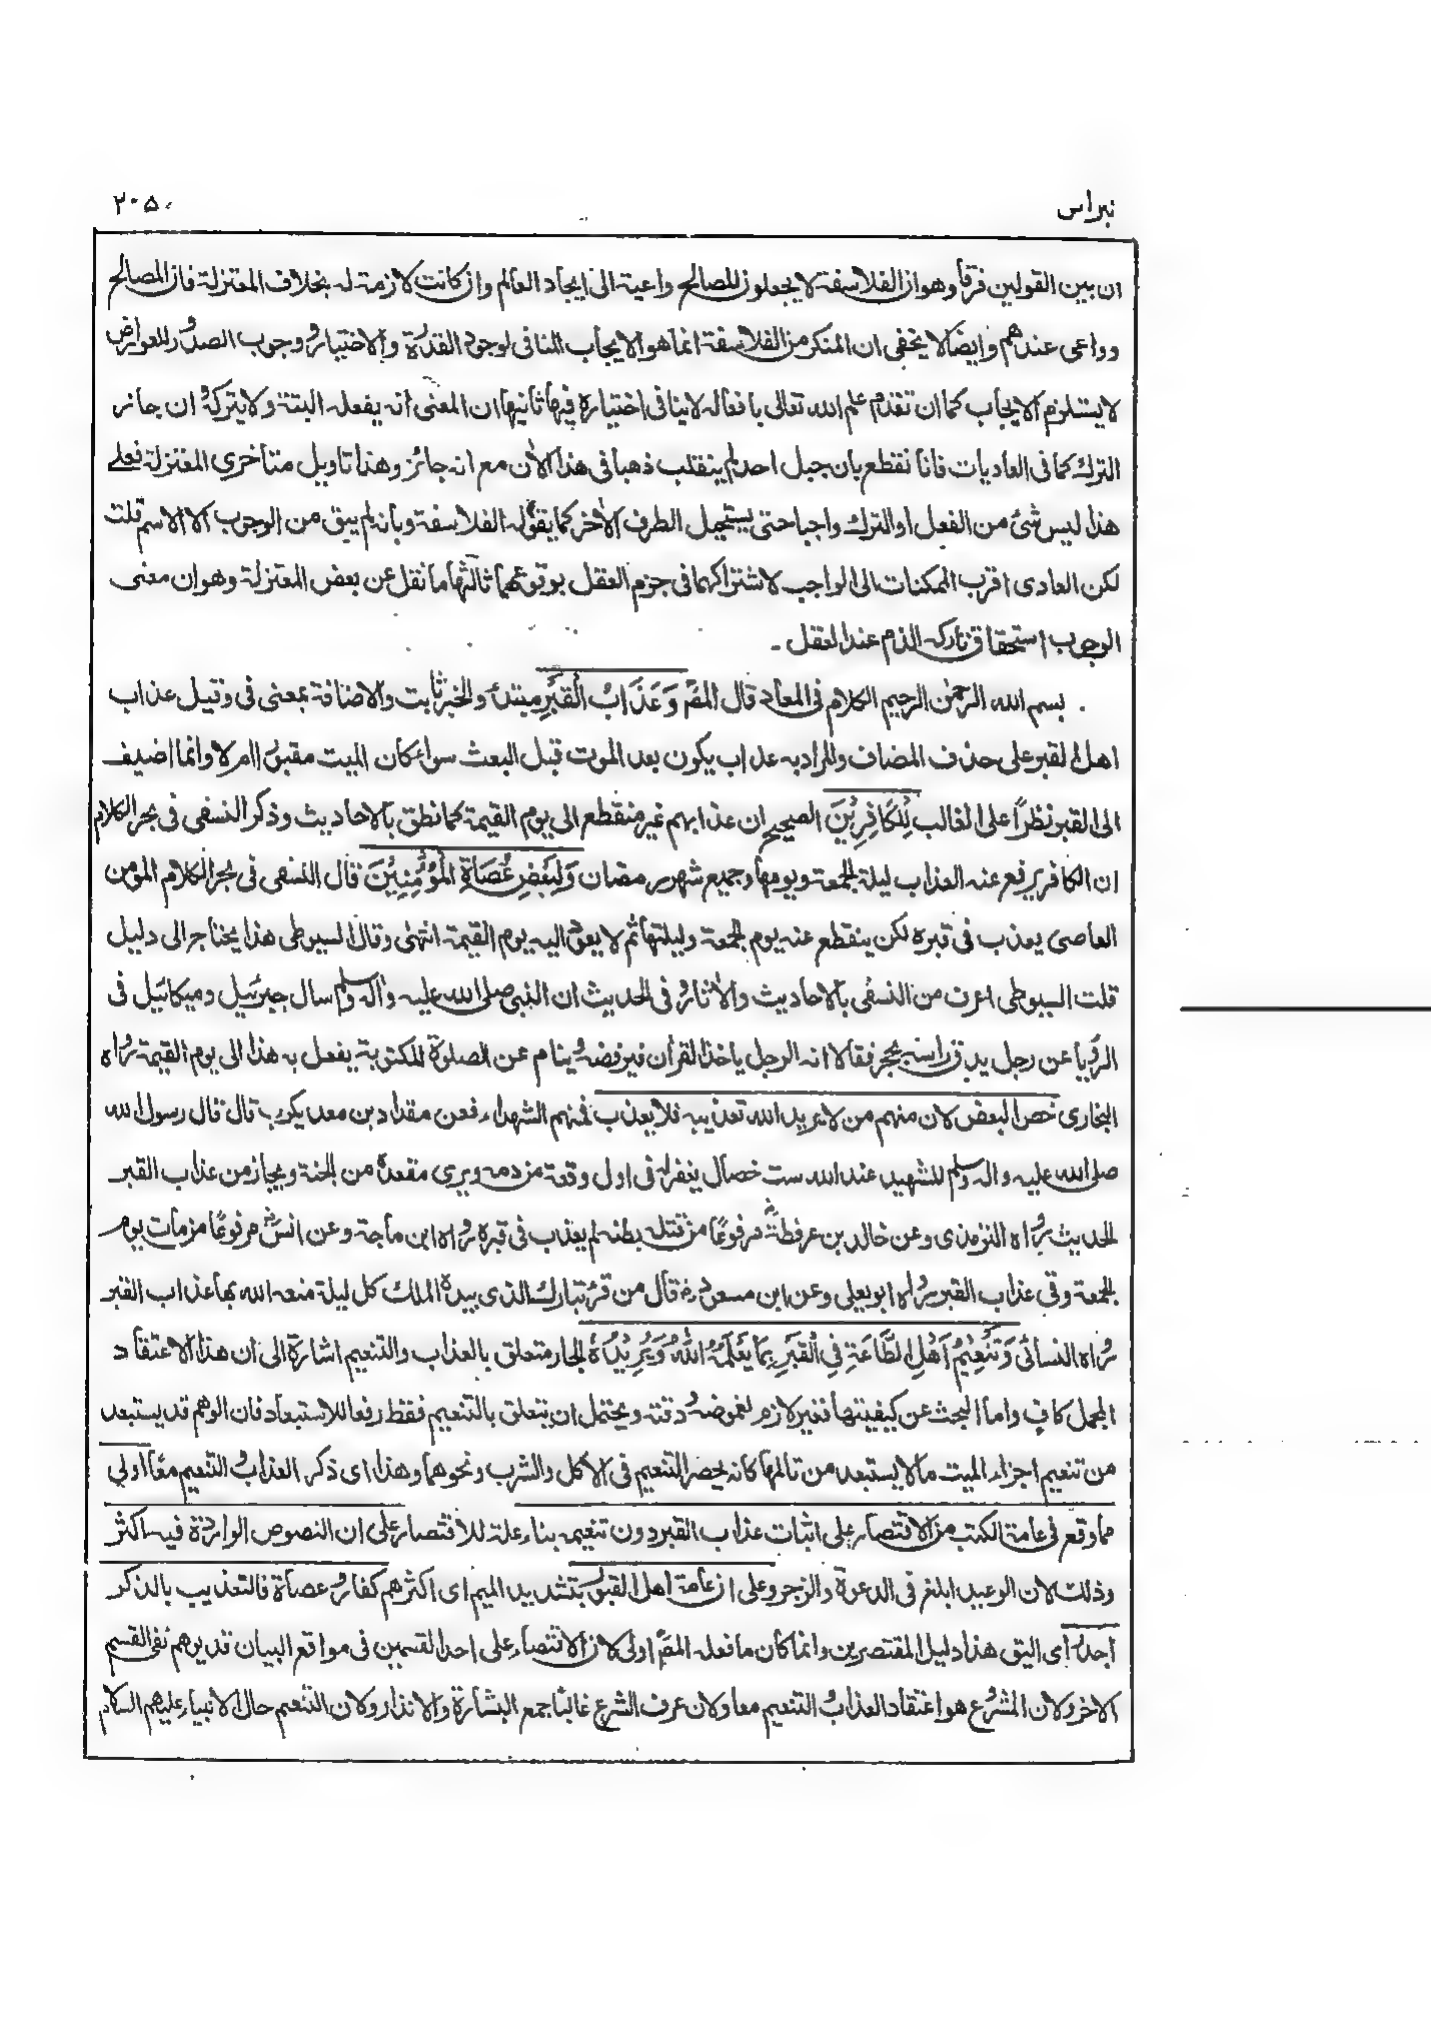 نبراس
٢٠٥
ان بين القولين فرقا وهو ان الفلاسفة لا يجعلون للمصالح داعية الى ايجاد العالم وان كانت لازمة له بخلاف المعتزلة فان المصالح
دواعى عندهم وايضا لا يخفى ان المنكر من الفلاسفة انما هو الايجاب المنافى لوجود القدرة والاختيار ووجوب الصدور للعوارض
لا يستلزم الايجاب كما ان تقدم علم الله تعالى بافعاله لا ينافى اختياره فيها ثانيها ان المعنى انه يفعله البتة ولا يتركه وان جاز
الترك كما فى العاديات فانا نقطع بان جبل احد لم ينقلب ذهبا فى هذا الآن مع انه جائز وهذا تاويل متاخرى المعتزلة فعلے
هذا ليس شئ من الفعل او الترك واجبا حتى يستحيل الطرف الآخر كما يقوله الفلاسفة وبانه لم يبق من الوجوب الا الاسم قلت
لكن العادى اقرب الممكنات الى الواجب لاشتراكهما فى جزم العقل بوقوعهما ثالثها ما نقل عن بعض المعتزلة وهو ان معنى
الوجوب استحقاق تاركه الذم عند العقل ۔
بسم الله الرحمٰن الرحيم الكلام فى المعاد قال المصؒ وَعَذَابُ الْقَبْرِ مبتدأ والخبر ثابت والاضافة بمعنى فى وقيل عذاب
اهل القبر على حذف المضاف والمراد به عذاب يكون بعد الموت قبل البعث سواء كان الميت مقبورا ام لا وانما اضيف
الى القبر نظراً على الغالب لِلْكَافِرِيْنَ الصحيح ان عذابهم غير منقطع الى يوم القيمة كما نطق به الاحاديث وذكر النسفى فى بحر الكلام
ان الكافر يرفع عنه العذاب ليلة الجمعة ويومها وجميع شهر رمضان وَلِبَعْضِ عُصَاةِ الْمُؤْمِنِيْنَ قال النسفى فى بحر الكلام المؤمن
العاصى يعذب فى قبره لكن ينقطع عنه يوم الجمعة وليلتها ثم لا يعود اليه يوم القيمة انتهٰى وقال السيوطى هذا يحتاج الى دليل
قلت السيوطى اعرف من النسفى بالاحاديث والآثار وفى الحديث ان النبى صلى الله عليه واٰله وسلم سال جبرئيل وميكائيل فى
الرؤيا عن رجل يدق راسه بحجر فقالا انه الرجل ياخذ القرآن فيرفضه وينام عن الصلوٰة المكتوبة يفعل به هذا الى يوم القيمة رواه
البخارى خص البعض لان منهم من لا يريد الله تعذيبه فلا يعذب فمنهم الشهداء فعن مقداد بن معديكرب قال قال رسول الله
صلى الله عليه واله وسلم للشهيد عند الله ست خصال يغفر له فى اول وقعة من دمه ويرى مقعده من الجنة ويجاز من عذاب القبر
الحديث رواه الترمذى وعن خالد بن عرفطةؓ مرفوعًا من قتله بطنه لم يعذب فى قبره رواه ابن ماجة وعن انسؓ مرفوعًا من مات يوم
الجمعة وقى عذاب القبر رواه ابو يعلى وعن ابن مسعودؓ قال من قرء تبارك الذى بيده الملك كل ليلة منعه الله بها عذاب القبر
رواه النسائى وَتَنْعِيْمُ اَهْلِ الطَّاعَةِ فِى الْقَبْرِ بِمَا يَعْلَمُهُ اللّٰهُ وَيُرِيْدُهٗ الجار متعلق بالعذاب والتنعيم اشارة الى ان هذا الاعتقاد
المجمل كاف واما البحث عن كيفيتها فغير لازم لغموضه ودقته ويحتمل ان يتعلق بالتنعيم فقط رفعا للاستبعاد فان الوهم قد يستبعد
من تنعيم اجزاء الميت ما لا يستبعد من تالمها كانه يحصر التنعيم فى الاكل والشرب ونحوهما وهذا اى ذكر العذاب والتنعيم معًا اولى
مما وقع فى عامة الكتب من الاقتصار على اثبات عذاب القبر دون تنعيمه بناء علة للاقتصار على ان النصوص الواردة فيه اكثر
وذلك لان الوعيد ابلغ فى الدعوة والزجر وعلى ان عامة اهل القبور بتشديد الميم اى اكثرهم كفار وعصاة فالتعذيب بالذكر
اجدر اى اليق هذا دليل المقتصرين وانما كان ما فعله المصؒ اولى لان الاقتصار على احد القسمين فى مواقع البيان قد يوهم نفى القسم
الآخر ولان المشروع هو اعتقاد العذاب والتنعيم معا ولان عرف الشرع غالبا جمع البشارة والانذار ولان التنعيم حال الانبياء عليهم السلام